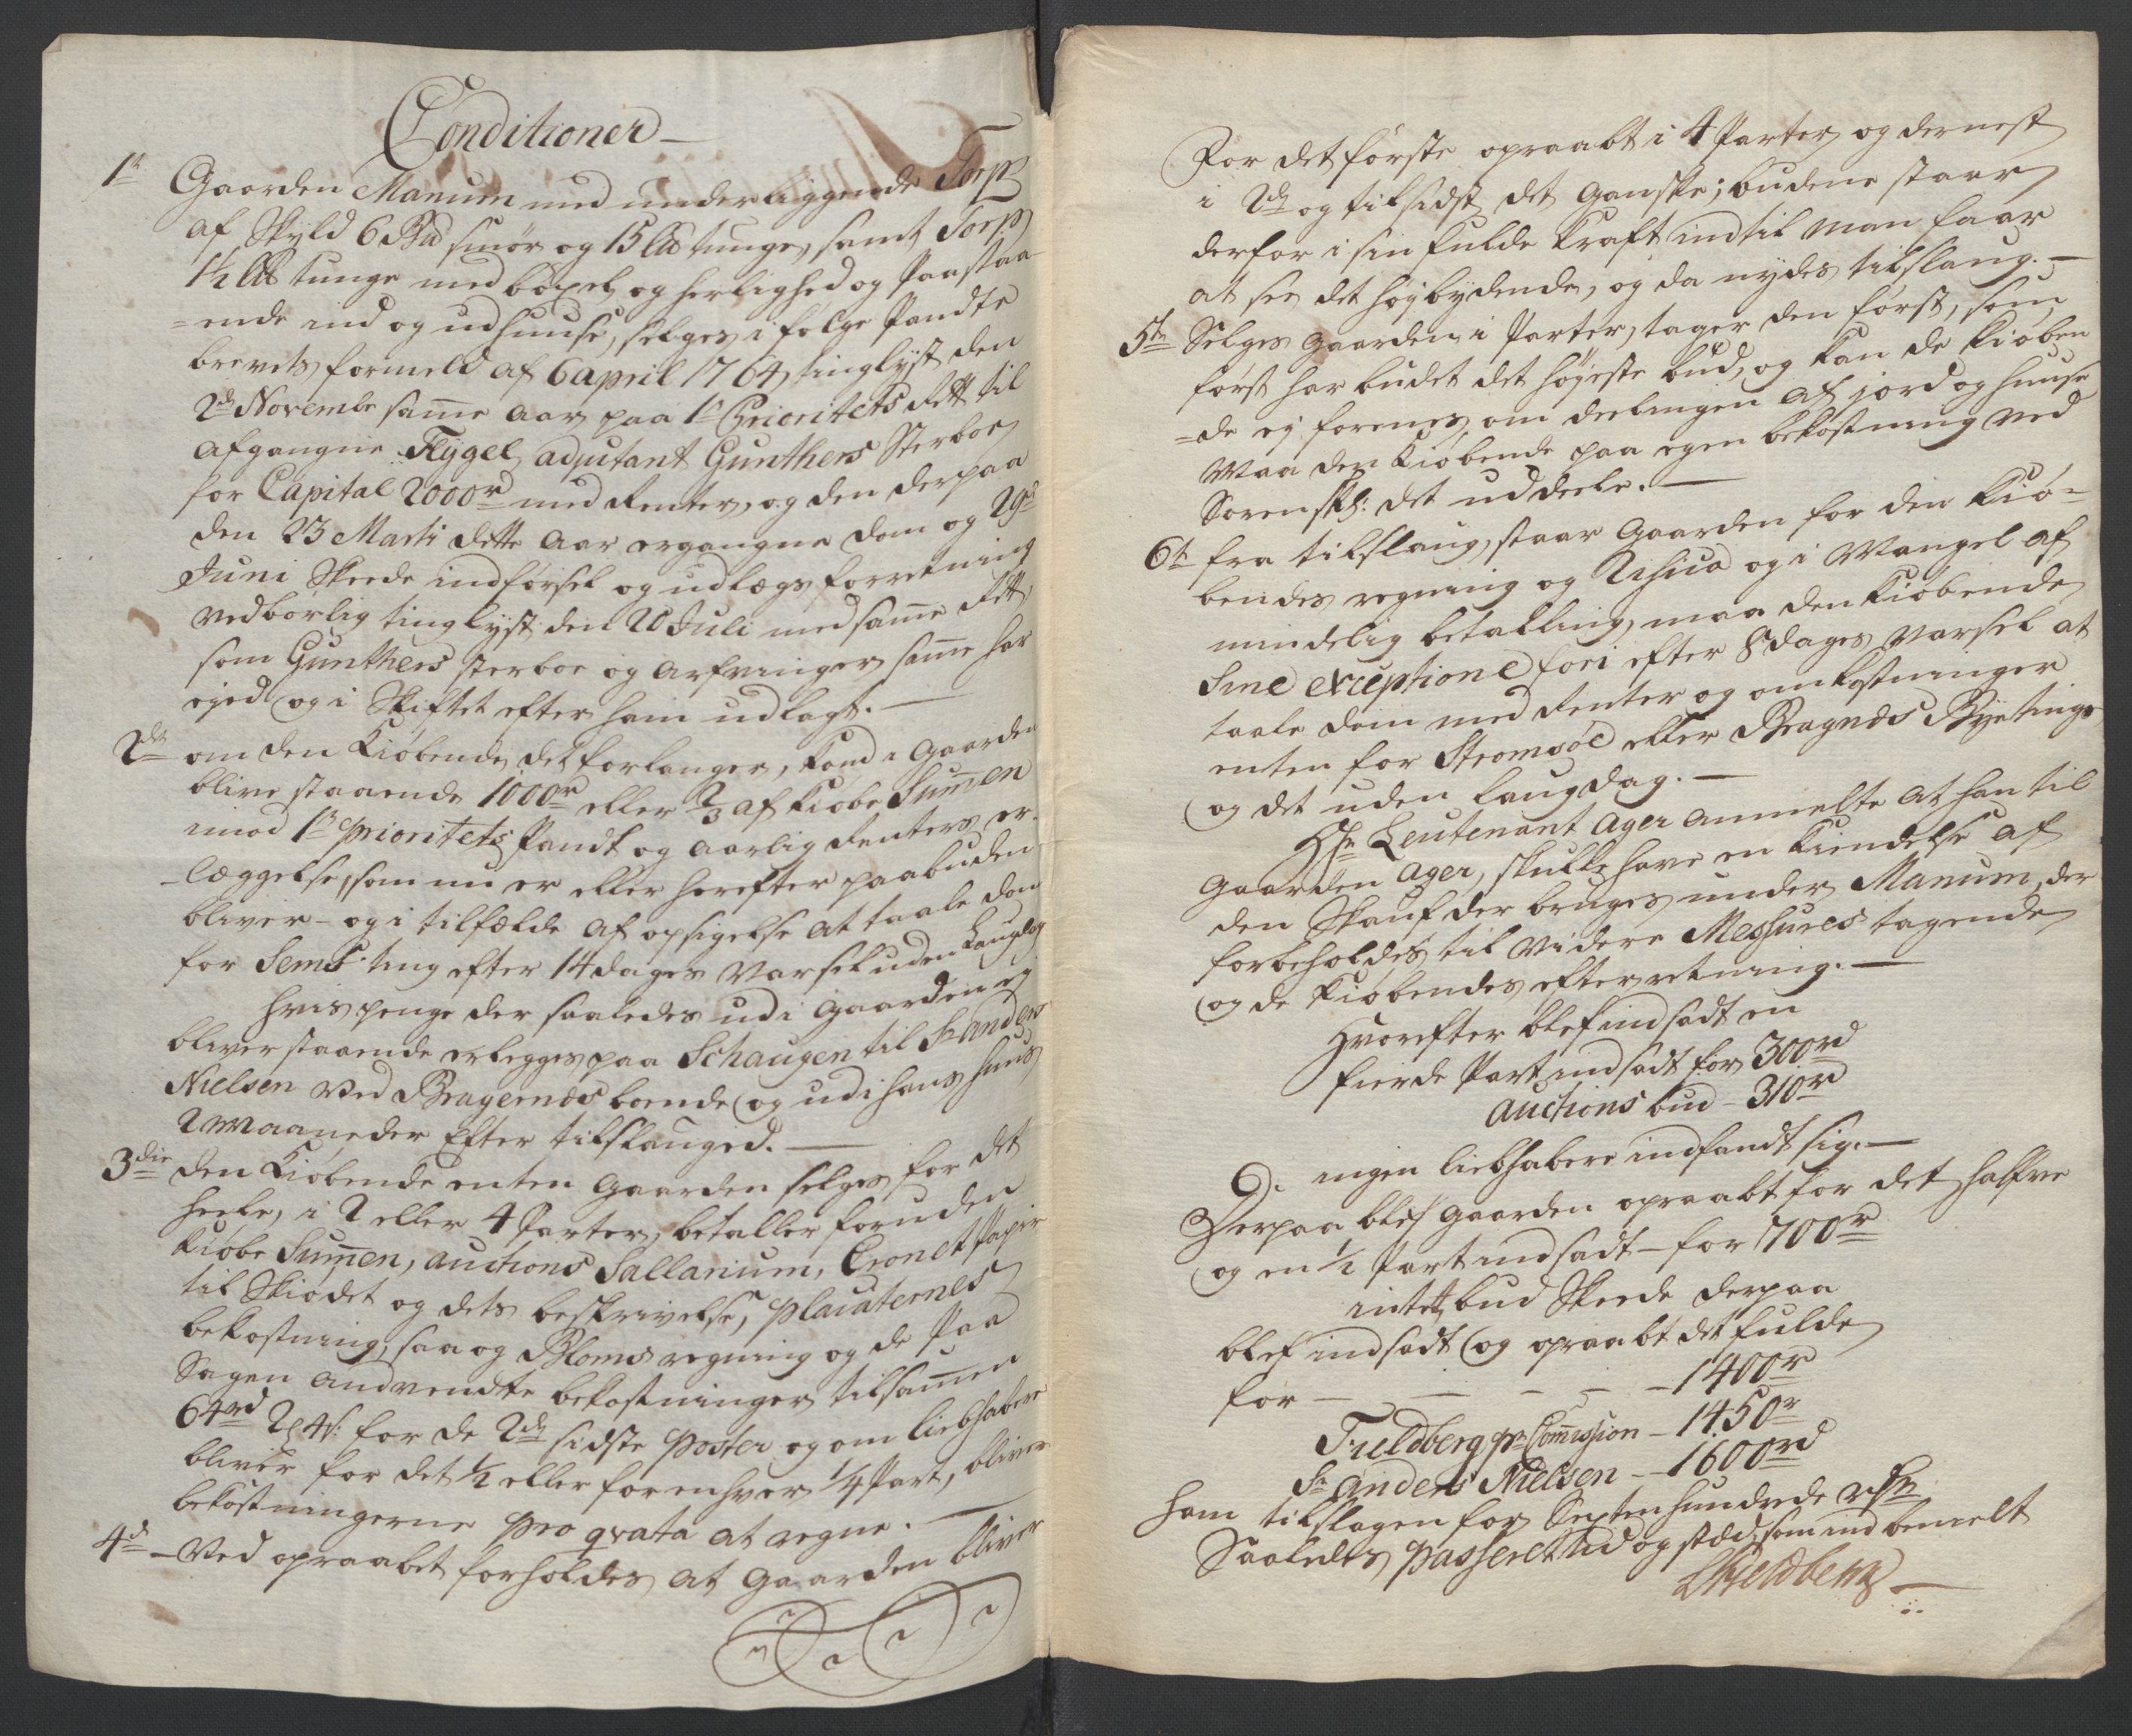 Conditioner
1te Gaarden Manum med underliggende Torp
af Skyld 6 Bd smör og 15 lb tunge, samt Torp
1½ lb tunge med böxel og herlighed og Paastaa
=ende ind og udhuuse, selges i fölge Pandte
brevets formeld af 6 april 1764 tinglyst den
2de Novembr samme aar paa 1te Prioritets Rett til
afgangne Flygel adjutant Gunthers Sterboe
for Capital 2000 r med Renter, og den derpaa
den 23 Marti dette aar ergangne dom og 29de
Juni Skeede indförsel og udlægs forretning
vedbörlig tinglyst den 20 Juli med samme Rett,
som Gunthers sterboe og arfvinger samme har
ejed og i Skiftet efter ham udlagt.
2det om den Kiöbende det forlanger, kand i Gaarden
blive staaende 1000 r eller 2/3 af Kiöbe Summen
imod 1te prioritets Pandt og aarlig Renters er=
læggelse, som nu er eller herefter paabuden
bliver - og i tilfælde af opsigelse at taale dom
for Sems ting efter 14 dages varsel uden Laugdag
hvis penge der saaledes ud i Gaarden ej
bliver staaende erlegges paa Schaugen til Sr Anders
Nielsen ved Bragernæs boende og ud i hans huus
2 Maaneder Efter tilslauged.
3die den Kiöbende enten Gaarden selges for det
heele, i 2 eller 4 Parter, betaller foruden
Kiöbe Summen, auctions Sallarium, Cronet Papir
til Skiödet og dets beskrivelse, placaternes
bekostning, saa og Bloms regning og de Paa
Sagen andvendte bekostninger tilsammen
64 rd 2 4 s: for de 2de sidste poster og om liebhabere
bliver for det ½ eller for enhver ¼ Part, bliver
bekostningerne pro qvata at regne.
4de - Ved opraabet forholdes at Gaarden bliver
For det förste opraabt i 4 Parter og dernest
i 2de og tilsidst det Ganske; budene staar
derfor i sin fulde Kraft indtil man faar
at see det höjbydende, og da nydes tilslaug.
5te Selges Gaarden i Parter, tager den först, som
först har budet det höjeste bud, og kan de Kiöben
=de ej forenes om deelingen af jord og huuse
Maa den Kiöbende paa egen bekostning ved
Sorenskr: det uddeele.
6te fra tilslaug staar Gaarden for den Kiö=
bendes regning og Risico og i Mangel af
mindelig betalling, maa den Kiöbende
Sine exceptione fori efter 8 dages varsel at
taale dom med Renter og omkostninger
enten for Stromsöe eller Bragnæs Byetinge
og det uden laugdag.
Hr Leutenant Ager anmelte at han til
Gaarden Ager, skulle have en Kiendelse af
den Skauf der bruges under Manum, der
forbeholdes til videre Messures tagende
og de Kiöbendes efterretning.
Hvorefter blef indsadt en
fierde Part indsadt for 300 rd
auctions bud - 310 rd
ingen liebhabere indfandt sig.
Derpaa blef Gaarden opraabt for det halfve
og en ½ Part indsadt - for 700 r
intet bud Skeede derpaa
blef indsadt og opraabt det fulde
for - - - - - 1400 r
Fieldberg pr Commission - 1450 r
Sr Anders Nielsen - 1600 rd
ham tilslagen for Sexten hundrede rdr
Saaledes passeret tid og sted som indbemelt